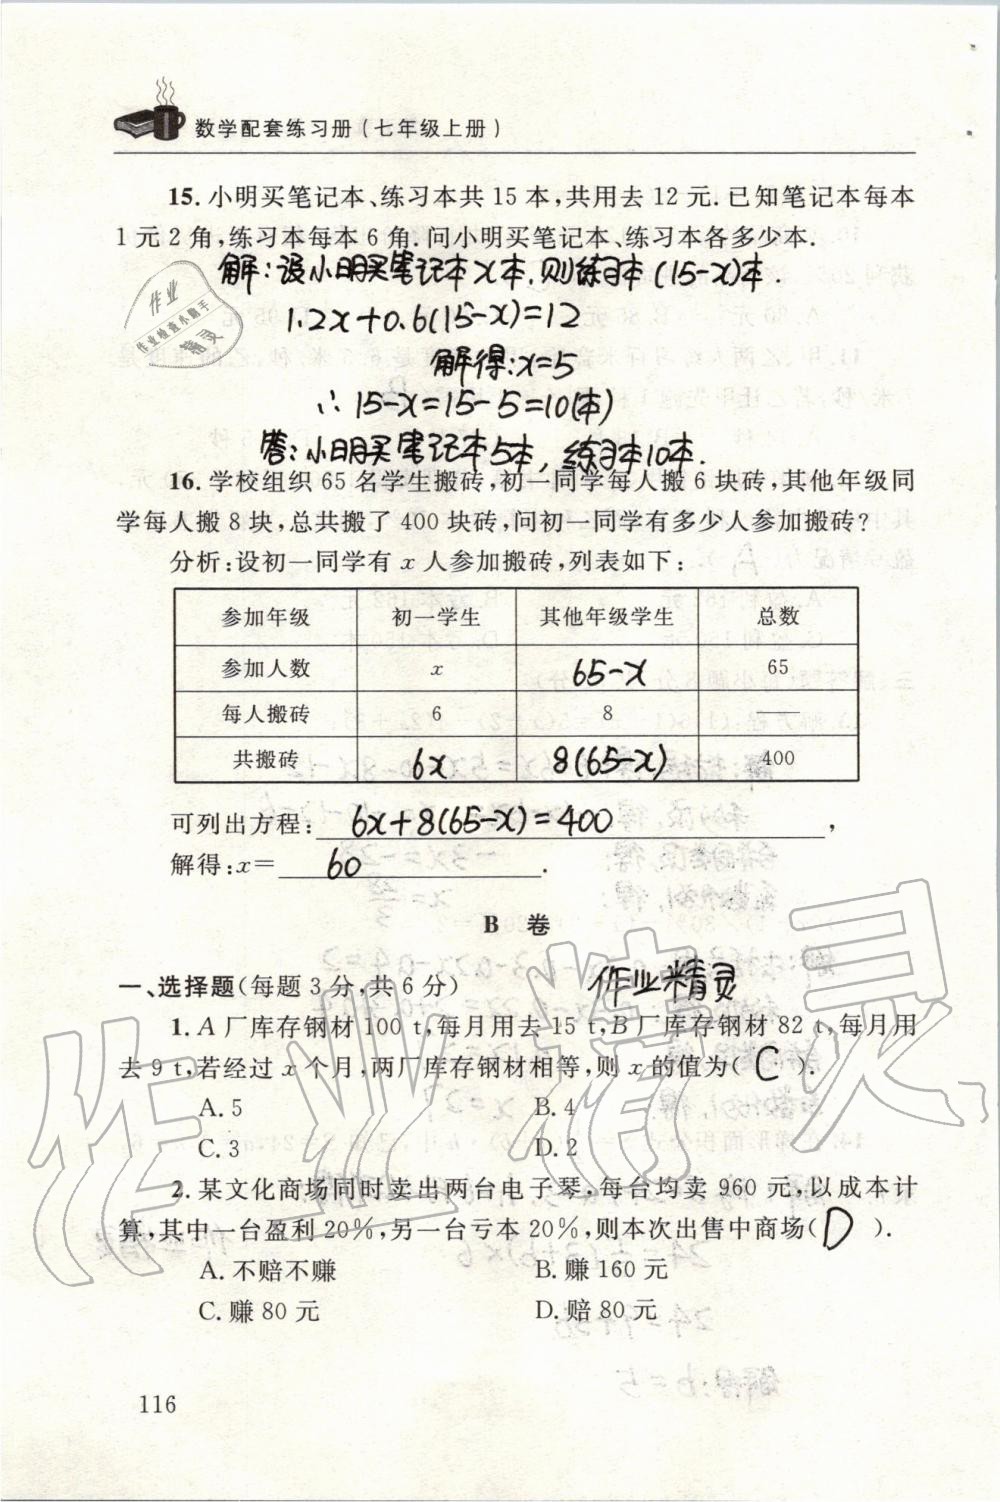 数学配套练习册(七年级上册)
15.小明买笔记本、练习本共15本,共用去12元.已知笔记本每本
1元2角,练习本每本6角.问小明买笔记本、练习本各多少本.
解:设小明买笔记本x本,则练习本(15-x)本.
1.2x+0.6(15-x)=12
解得:x=5
∴15-x=15-5=10(本)
答:小明买笔记本5本,练习本10本.
作业
作业检查小助手
精灵
16.学校组织65名学生搬砖,初一同学每人搬6块砖,其他年级同
学每人搬8块,总共搬了400块砖,问初一同学有多少人参加搬砖?
分析:设初一同学有x人参加搬砖,列表如下:
参加年级 初一学生 其他年级学生 总数
参加人数 x 65-x 65
每人搬砖 6 8 ——
共搬砖 6x 8(65-x) 400
可列出方程: 6x+8(65-x)=400 ,
解得:x= 60 .
B 卷
一、选择题(每题3分,共6分)
作业精灵
1.A厂库存钢材100 t,每月用去15 t,B厂库存钢材82 t,每月用
去9 t,若经过x个月,两厂库存钢材相等,则x的值为( C ).
A.5 B.4
C.3 D.2
2.某文化商场同时卖出两台电子琴,每台均卖960元,以成本计
算,其中一台盈利20%,另一台亏本20%,则本次出售中商场( D ).
A.不赔不赚 B.赚160元
C.赚80元 D.赔80元
作业精灵
116